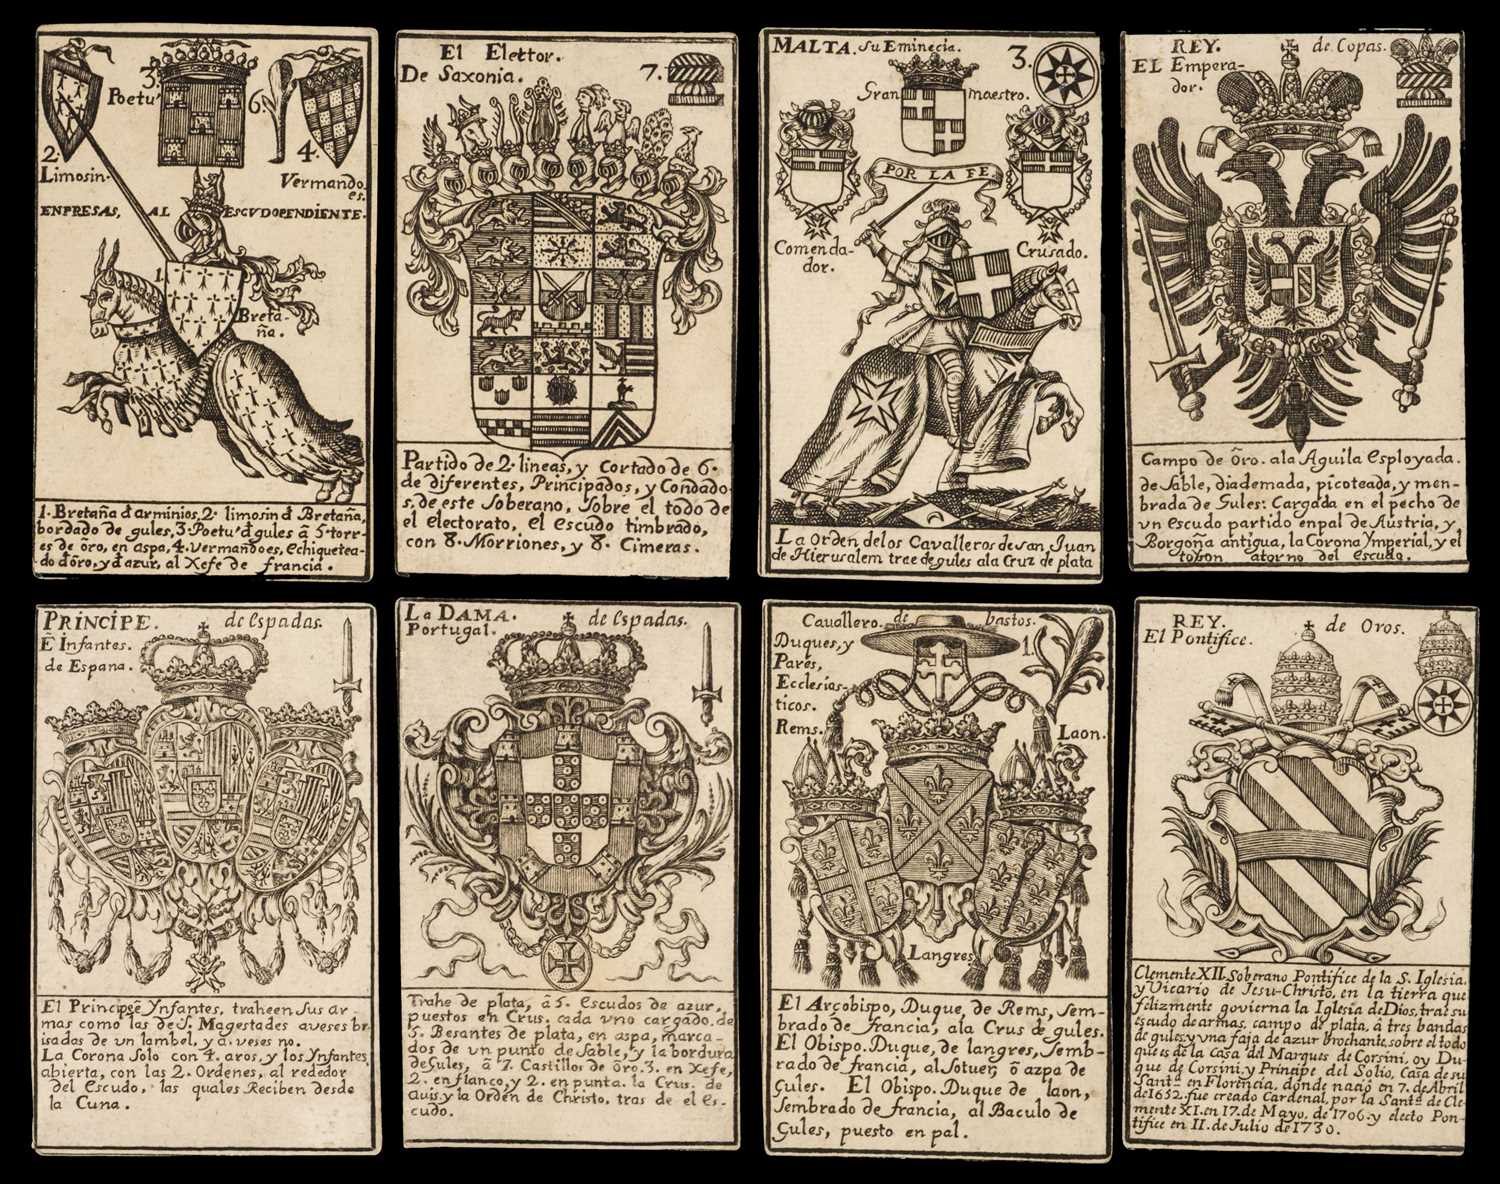 3.
Poetu
6.
2.
Limosin.
4.
Vermando
es.
ENPRESAS, AL ESCVDOPENDIENTE.
1.
Breta-
ña.
1. Bretaña đ arminios, 2. limosin đ Bretaña,
bordado de gules, 3. Poetu đ gules â 5 torr-
es de ôro, en aspa, 4. vermandoes, echiquetea-
do đ ôro, y đ azur, al Xefe de francia.
El Elettor.
De Saxonia.
7.
Partido de 2. lineas, y Cortado de 6.
de diferentes, Principados, y Condado
s, de este Soberano, Sobre el todo de
el electorato, el escudo timbrado,
con 8. Morriones, y 8. Cimeras.
MALTA. Su Eminecia.
3.
Gran maestro.
POR LA FE
Comenda-
dor.
Crusado.
La Orden delos Cavalleros de san Juan
de Hierusalem trae de gules ala Cruz de plata
REY. de Copas.
EL Empera-
dor.
Campo de ôro. ala Aguila esployada.
de Sable, diademada, picoteada, y men-
brada de Gules: Cargada en el pecho de
vn escudo partido enpal de Austria, y
Borgoña antigua, la Corona Ymperial, y el
toyson atorno del escudo.
PRINCIPE. de espadas.
Ê Infantes.
de Espana.
El Principeê Ynfantes, traheen sus ar-
mas como las de S. Magestades aveses br-
isadas de vn lambel, y â. veses no.
La Corona Solo con 4. aros, y los Ynfantes
abierta, con las 2. Ordenes, al rededor
del Escudo, las quales Reciben desde
la Cuna.
La DAMA. de espadas.
Portugal.
Trahe de plata, â 5. escudos de azur,
puestos en Crus. cada vno cargado. de
5. Besantes de plata, en aspa, marca-
dos de vn punto de sable, y la bordura
de Gules, â 7 Castillos de ôro. 3. en Xefe,
2. en flanco, y 2. en punta. la Crus. de
auis, y la Orden de Christo, tras de el es-
cudo.
Cauallero. de bastos.
Duques, y
Pares,
Ecclesias-
ticos.
1.
Rems.
Laon.
Langres
El Arçobispo, Duque de Rems, sem-
brado de francia, ala Crus de gules.
El Obispo. Duque, de langres, semb-
rado de francia, al Sotuer, ô azpa de
gules. El Obispo. Duque de laon,
sembrado de francia, al Baculo de
gules, puesto en pal.
REY. de Oros.
El Pontifice.
Clemente XII. Soberano Pontifice de la S. Iglesia,
y Vicario de Jesu-Christo, en la tierra que
felizmente govierna la Iglesia de Dios, trae su
escudo de armas, campo de plata, â tres bandas
de gules, y vna faja de azur brochante, sobre el todo
que es de la Casa del Marques de Corsini, oy Du-
que de Corsini, y Principe del Solio, Casa de su
Santd. en Florencia, donde nacio en 7. de Abril
de 1652. fue creado Cardenal, por la Santd. de Cle-
mente XI. en 17. de Mayo. de 1706. y electo Pon-
tifice en 11. de Julio de 1730.